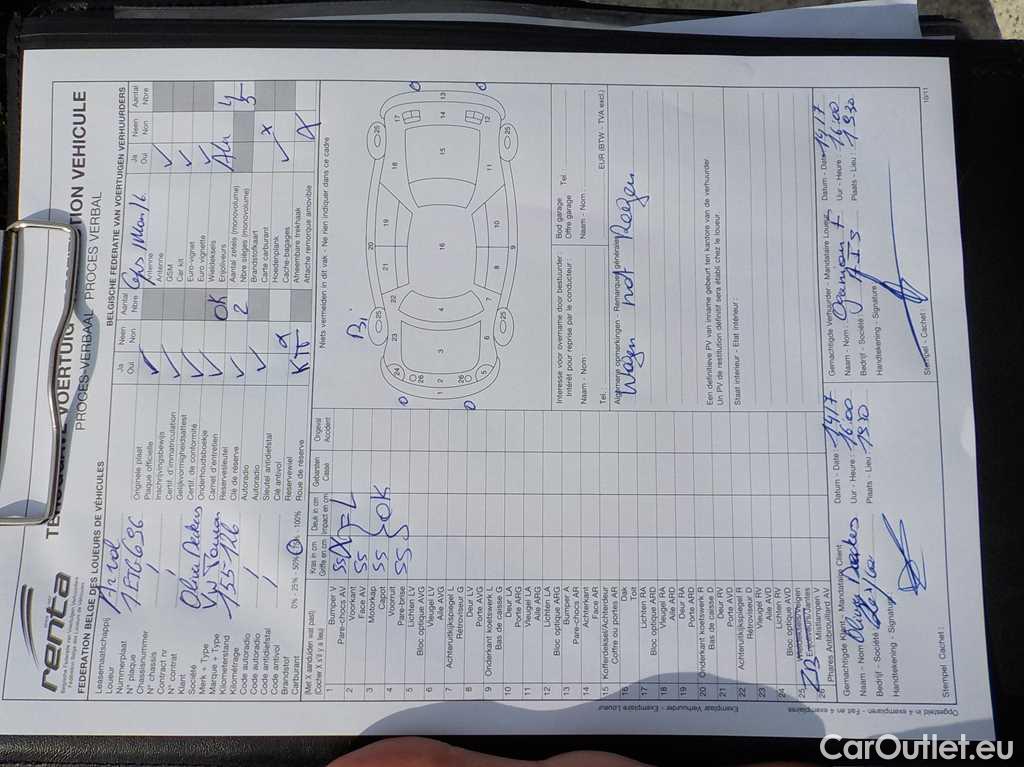 renta
Belgische Federatie van Voertuigen Verhuurders
Fédération Belge des Loueurs de Véhicules
FEDERATION BELGE DES LOUEURS DE VÉHICULES
PROCES-VERBAAL PROCES VERBAL
BELGISCHE FEDERATIE VAN VOERTUIGEN VERHUURDERS
Leasemaatschappij
Loueur
Arval
Nummerplaat
N° plaque
1ETG696
Chassisnummer
N° chassis
Contract nr
N° contrat
Klant
Société
Merk + Type
Marque + Type
VW Touran
Kilometerstand
Kilométrage
155-126
Code autoradio
Code autoradio
Code antidiefstal
Code antivol
Brandstof
Carburant
0% - 25% - 50% - 75% - 100%
Ja
Oui
Neen
Non
Aantal
Nbre
Originele plaat
Plaque officielle
Inschrijvingsbewijs
Certif. d'immatriculation
Gelijkvormigheidsattest
Certif. de conformité
Onderhoudsboekje
Carnet d'entretien
OK
Reservesleutel
Clé de réserve
2
Autoradio
Autoradio
Sleutel antidiefstal
Clé antivol
Reservewiel
Roue de réserve
Ja
Oui
Neen
Non
Aantal
Nbre
Antenne
Antenne
GSM
Car kit
Euro-vignet
Euro vignette
Wieldeksels
Enjoliveurs
Alu
4
Aantal zetels (monovolume)
Nbre sièges (monovolume)
5
Brandstofkaart
Carte carburant
Hoedenplank
Cache-bagages
Afneembare trekhaak
Attache remorque amovible
(Met X aanduiden wat past)
(Cocher X s'il y a lieu)
Kras in cm
Griffe en cm
Deuk in cm
Impact en cm
Gebarsten
Casse
Ongeval
Accident
Niets vermelden in dit vak - Ne rien indiquer dans ce cadre
1 Bumper V
Pare-chocs AV
2 Voorkant
Face AV
3 Motorkap
Capot
4 Voorruit
Pare-brise
5 Lichten LV
Bloc optique AVG
6 Vleugel LV
Aile AVG
7 Achteruitkijkspiegel L
Rétroviseur G
8 Deur LV
Porte AVG
9 Onderkant koetswerk L
Bas de caisse G
10 Deur LA
Porte ARG
11 Vleugel LA
Aile ARG
12 Lichten LA
Bloc optique ARG
13 Bumper A
Pare-chocs AR
14 Achterkant
Face AR
15 Kofferdeksel/Achterdeur
Coffre ou portes AR
16 Dak
Toit
17 Lichten RA
Bloc optique ARD
18 Vleugel RA
Aile ARD
19 Deur RA
Porte ARD
20 Onderkant koetswerk R
Bas de caisse D
21 Deur RV
Porte AVD
22 Achteruitkijkspiegel R
Rétroviseur D
23 Vleugel RV
Aile AVD
24 Lichten RV
Bloc optique AVD
25
Enjoliveurs/Jantes
26 Mistlampen V
Phares Antibrouillard AV
OK
Interesse voor overname door bestuurder :
Intérêt pour reprise par le conducteur :
Naam - Nom :
Tel. :
Bod garage
Offre garage
Naam - Nom :
Tel :
EUR (BTW - TVA excl.)
Algemene opmerkingen - Remarques générales
Wagen not Reegen
Een definitieve PV van inname gebeurt ten kantore van de verhuurder
Un PV de restitution définitif sera établi chez le loueur.
Staat interieur - Etat intérieur :
Gemachtigde Klant - Mandataire Client
Naam - Nom :
Bedrijf - Société :
Handtekening - Signature :
Stempel - Cachet :
Datum - Date : 14/7
Uur - Heure : 16.00
Plaats - Lieu : 1930
Gemachtigde Verhuurder - Mandataire Loueur
Naam - Nom :
Bedrijf - Société :
Handtekening - Signature :
Stempel - Cachet :
Datum - Date : 14/7
Uur - Heure : 16:00
Plaats - Lieu : 1930
Exemplaar Verhuurder - Exemplaire Loueur
Opgesteld in 4 exemplaren - Fait en 4 exemplaires
10/11
CarOutlet.eu